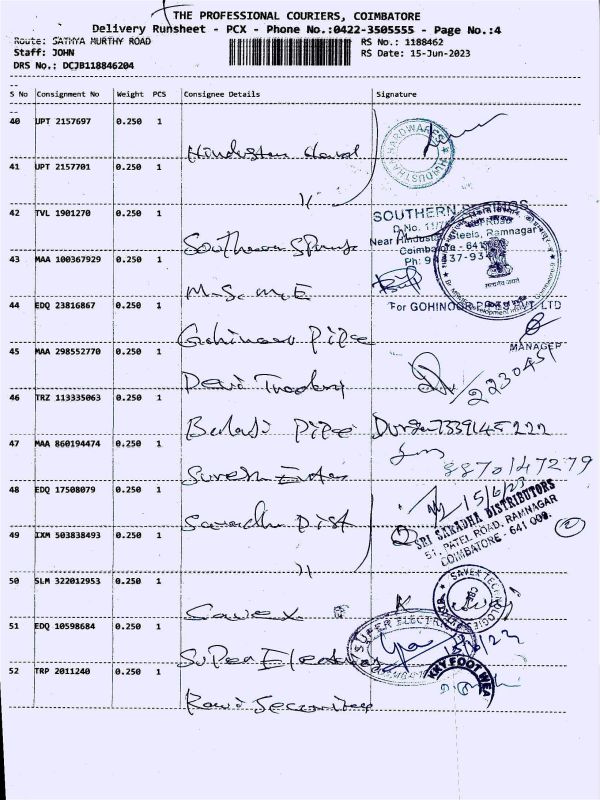 THE PROFESSIONAL COURIERS, COIMBATORE
Delivery Runsheet - PCX - Phone No.:0422-3505555 - Page No.:4
Route: SATHYA MURTHY ROAD
RS No.: 1188462
Staff: JOHN
RS Date: 15-Jun-2023
DRS No.: DCJB118846204
S No Consignment No Weight PCS Consignee Details Signature
40 UPT 2157697 0.250 1
HINDUSTHAN HARDWARES
41 UPT 2157701 0.250 1
42 TVL 1901270 0.250 1
Southern Springs
SOUTHERN SPRINGS
Near Hindustan Steels, Ramnagar
Coimbatore - 641
43 MAA 100367929 0.250 1
M.S.M.E
44 EDQ 23816867 0.250 1
Gohinoor Pipe
For GOHINOOR PIPES PVT. LTD
MANAGER
45 MAA 298552770 0.250 1
Devi Trading
46 TRZ 113335063 0.250 1
Balaji Pipe Durga 7339145222
47 MAA 860194474 0.250 1
Suresh
8870147279
48 EDQ 17508079 0.250 1
Saradha Dist
15/6/23
SRI SARADHA DISTRIBUTORS
51, PATEL ROAD, RAMNAGAR
COIMBATORE - 641 009.
49 IXM 503838493 0.250 1
50 SLM 322012953 0.250 1
Savex
51 EDQ 10598684 0.250 1
Super Electricals
SUPER ELECTRICALS
52 TRP 2011240 0.250 1
KKY FOOT WEA